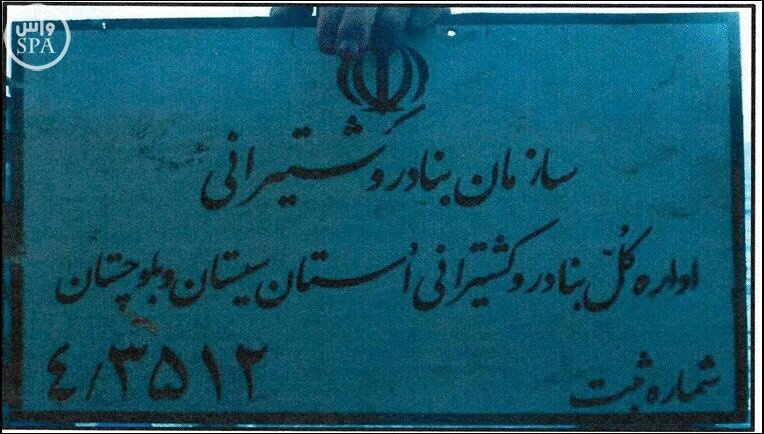 واس
SPA
سازمان بنادر و کشتیرانی
اداره کل بنادر و کشتیرانی استان سیستان و بلوچستان
شماره ثبت ۴/۳۵۱۲